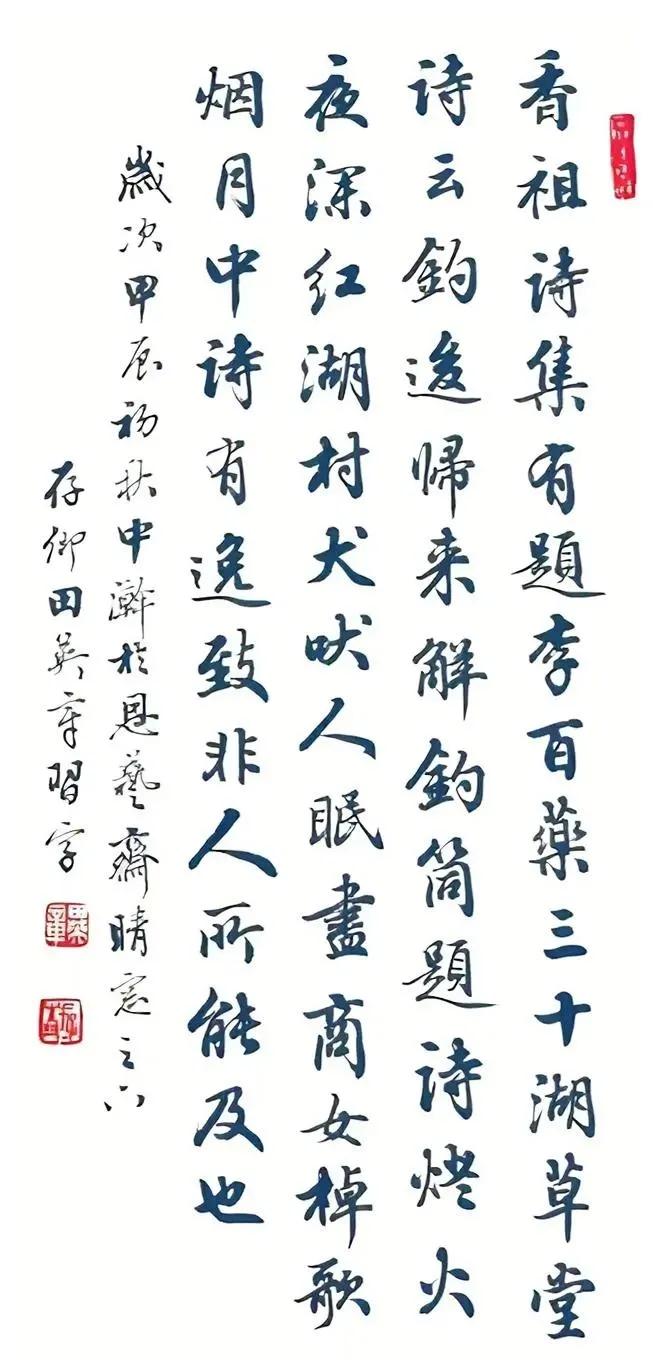 香祖诗集有题李百药三十湖草堂
诗云钓逡帰来解钓筒题诗烬火
夜深红湖村犬吠人眠盡商女棹歌
烟月中诗有逸致非人所能及也
歳次甲辰初秋中澣於恩藝齋晴窓之下
存卿田英章習字